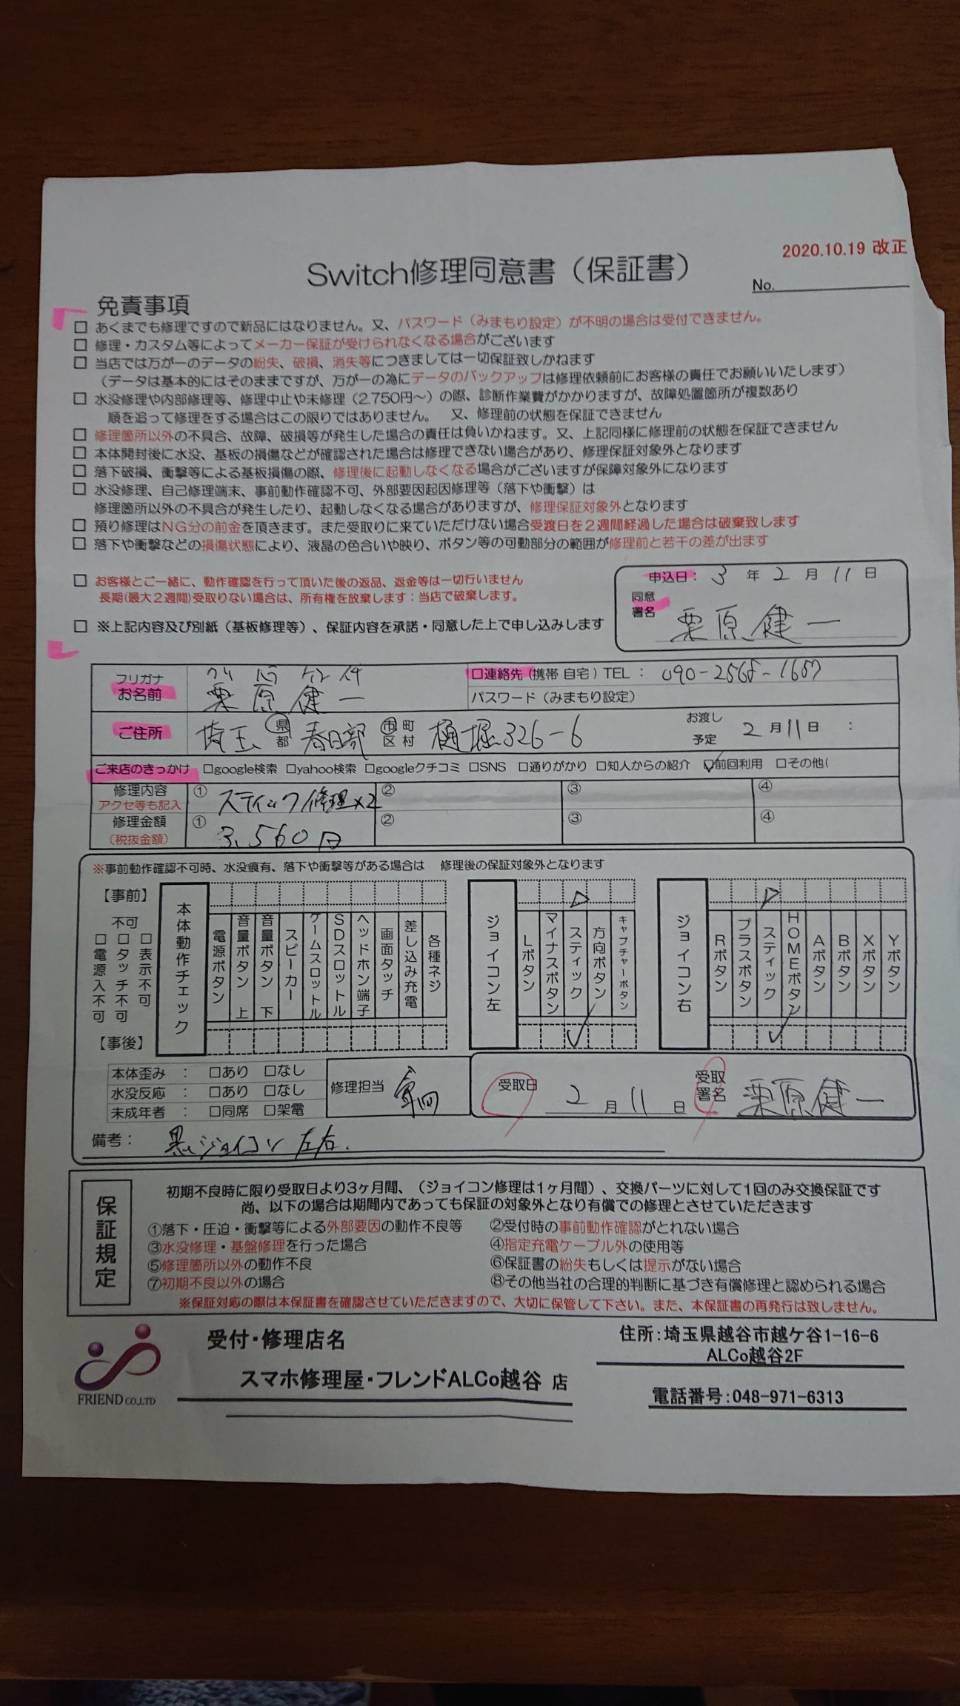 2020.10.19 改正
Switch修理同意書（保証書）
No.
免責事項
□ あくまでも修理ですので新品にはなりません。又、パスワード（みまもり設定）が不明の場合は受付できません。
□ 修理・カスタム等によってメーカー保証が受けられなくなる場合がございます
□ 当店では万が一のデータの紛失、破損、消失等につきましては一切保証致しかねます
（データは基本的にはそのままですが、万が一の為にデータのバックアップは修理依頼前にお客様の責任でお願いいたします）
□ 水没修理や内部修理等、修理中止や未修理（2,750円～）の際、診断作業費がかかりますが、故障処置箇所が複数あり
順を追って修理をする場合はこの限りではありません。 又、修理前の状態を保証できません
□ 修理箇所以外の不具合、故障、破損等が発生した場合の責任は負いかねます。又、上記同様に修理前の状態を保証できません
□ 本体開封後に水没、基板の損傷などが確認された場合は修理できない場合があり、修理保証対象外となります
□ 落下破損、衝撃等による基板損傷の際、修理後に起動しなくなる場合がございますが保障対象外になります
□ 水没修理、自己修理端末、事前動作確認不可、外部要因起因修理等（落下や衝撃）は
修理箇所以外の不具合が発生したり、起動しなくなる場合がありますが、修理保証対象外となります
□ 預り修理はNG分の前金を頂きます。また受取りに来ていただけない場合受渡日を2週間経過した場合は破棄致します
□ 落下や衝撃などの損傷状態により、液晶の色合いや映り、ボタン等の可動部分の範囲が修理前と若干の差が出ます
□ お客様とご一緒に、動作確認を行って頂いた後の返品、返金等は一切行いません
長期(最大2週間)受取りない場合は、所有権を放棄します：当店で破棄します。
□ ※上記内容及び別紙（基板修理等）、保証内容を承諾・同意した上で申し込みします
申込日： 3 年 2 月 11 日
同意
署名 栗原健一
フリガナ
お名前 栗原健一
□連絡先（携帯 自宅）TEL： 090-2568-1687
パスワード（みまもり設定）
ご住所 埼玉 県 都 春日部 市 区 町 村 樋堀326-6
お渡し
予定 2 月 11 日 ：
ご来店のきっかけ □google検索 □yahoo検索 □googleクチコミ □SNS □通りがかり □知人からの紹介 ☑前回利用 □その他(
修理内容 ① スティック修理×2 ② ③ ④
アクセ等も記入
修理金額 ① 3,560円 ② ③ ④
（税抜金額）
※事前動作確認不可時、水没痕有、落下や衝撃等がある場合は 修理後の保証対象外となります
【事前】
不可
□表示不可
□タッチ不可
□電源入不可
【事後】
本体動作チェック
電源ボタン
音量ボタン 上
音量ボタン 下
スピーカー
ゲームスロットル
SDスロットル
ヘッドホン端子
画面タッチ
差し込み充電
各種ネジ
ジョイコン左
Lボタン
マイナスボタン
スティック
方向ボタン
キャプチャーボタン
ジョイコン右
Rボタン
プラスボタン
スティック
HOMEボタン
Aボタン
Bボタン
Xボタン
Yボタン
本体歪み ： □あり □なし
水没反応 ： □あり □なし
未成年者 ： □同席 □架電
修理担当
受取日 2 月 11 日
受取
署名 栗原健一
備考： 黒ジョイコン 左右.
保証規定
初期不良時に限り受取日より3ヶ月間、（ジョイコン修理は1ヶ月間）、交換パーツに対して1回のみ交換保証です
尚、以下の場合は期間内であっても保証の対象外となり有償での修理とさせていただきます
①落下・圧迫・衝撃等による外部要因の動作不良等 ②受付時の事前動作確認がとれない場合
③水没修理・基盤修理を行った場合 ④指定充電ケーブル外の使用等
⑤修理箇所以外の動作不良 ⑥保証書の紛失もしくは提示がない場合
⑦初期不良以外の場合 ⑧その他当社の合理的判断に基づき有償修理と認められる場合
※保証対応の際は本保証書を確認させていただきますので、大切に保管して下さい。また、本保証書の再発行は致しません。
FRIEND CO.,LTD
受付・修理店名
スマホ修理屋・フレンドALCo越谷 店
住所：埼玉県越谷市越ケ谷1-16-6
ALCo越谷2F
電話番号：048-971-6313